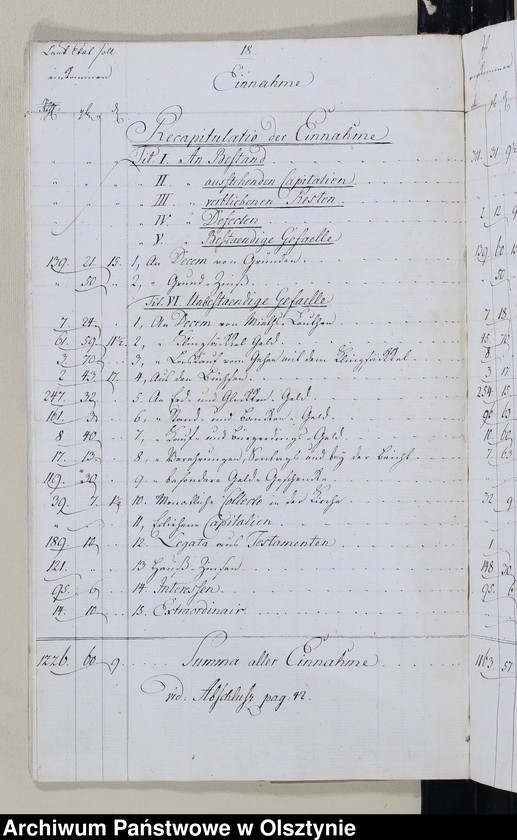 18.
Laut Etat soll
einkommen
Einnahme
Recapitulatio der Einnahme
Tit I. An Bestand
" II " ausstehenden Capitalien
" III " verbliebenen Resten
" IV " Defecten
" V " Bestaendige Gefaelle
129. 21. 15. 1, An Decem von Gründen
" 50. 2, " Grund-Zinß
Tit. VI Unbestaendige Gefaelle
7. 24. 1, An Decem von Mieths-Leuthen
61. 59. 2, " Klingsäckel Geld
3. 70. 3, vom Gehen mit dem Klingsäckel
2. 43. 17. 4, Aus den Büchsen
247. 32. 5. An Erd- und Glocken-Geld
161. 3. 6, " Stand- und Bancken-Geld
8. 40. 7, " Tauf- und Geld
17. 13. 8, " Verehrungen, und bey der Beicht
119. 30. 9 " besondere Geld Geschencke
39. 7. 10. Monatliche Collecte in der Kirche
11, Capitalien
189. 10. 12. Legata aus Testamenten
121. 13 Hauß-Zinsen
95. 6. 14. Interssen
14. 10. 15. Extraordinair
1226. 60. 9. Summa aller Einnahme
vid. Abschluss pag. 42.
311. 31.
2 12
129 60 15
50.
7 18
45
3 17
254 15
96 63
10 60
7 63
32 9
1
148 20
95. 6
1163 57
Archiwum Państwowe w Olsztynie